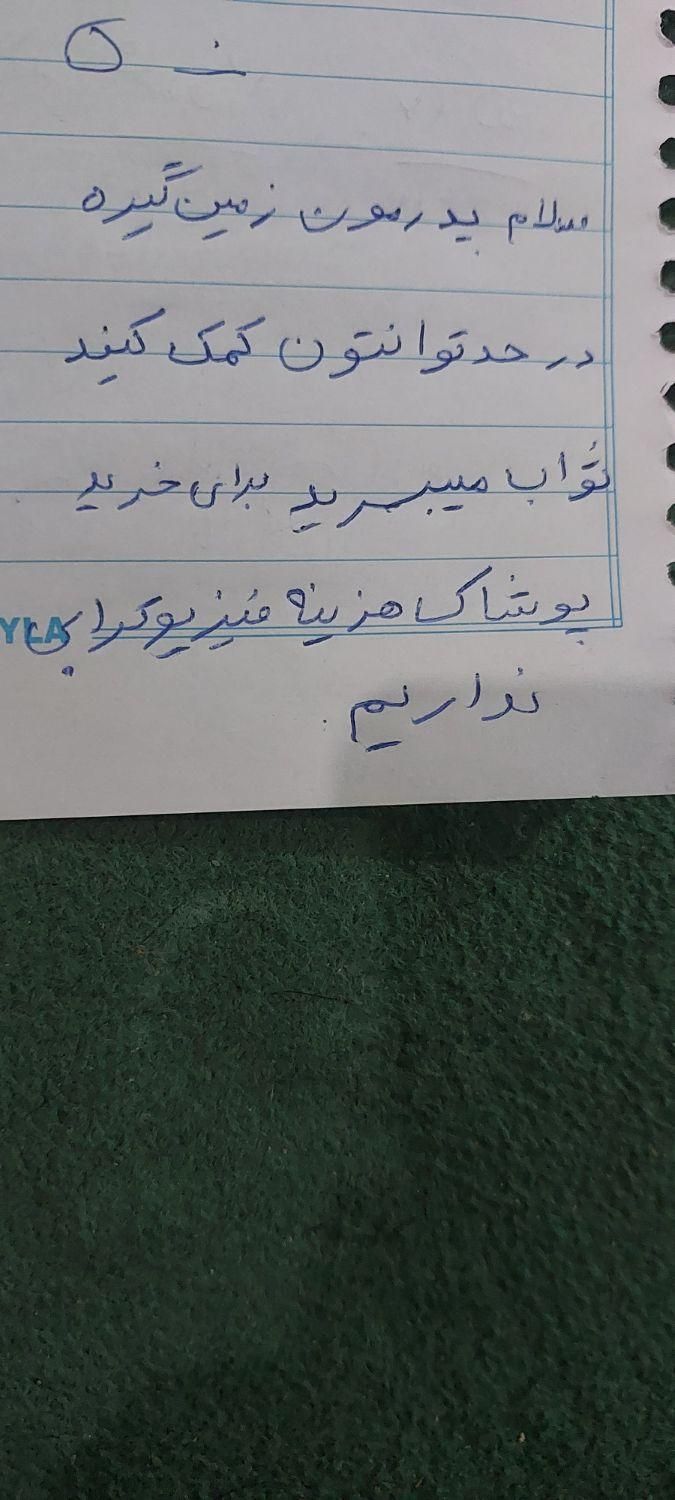 سلام پدرمون زمین گیره
در حد توانتون کمک کنید
ثواب میبرید برای خرید
پوشاک هزینه فیزیوتراپی
نداریم
YLA